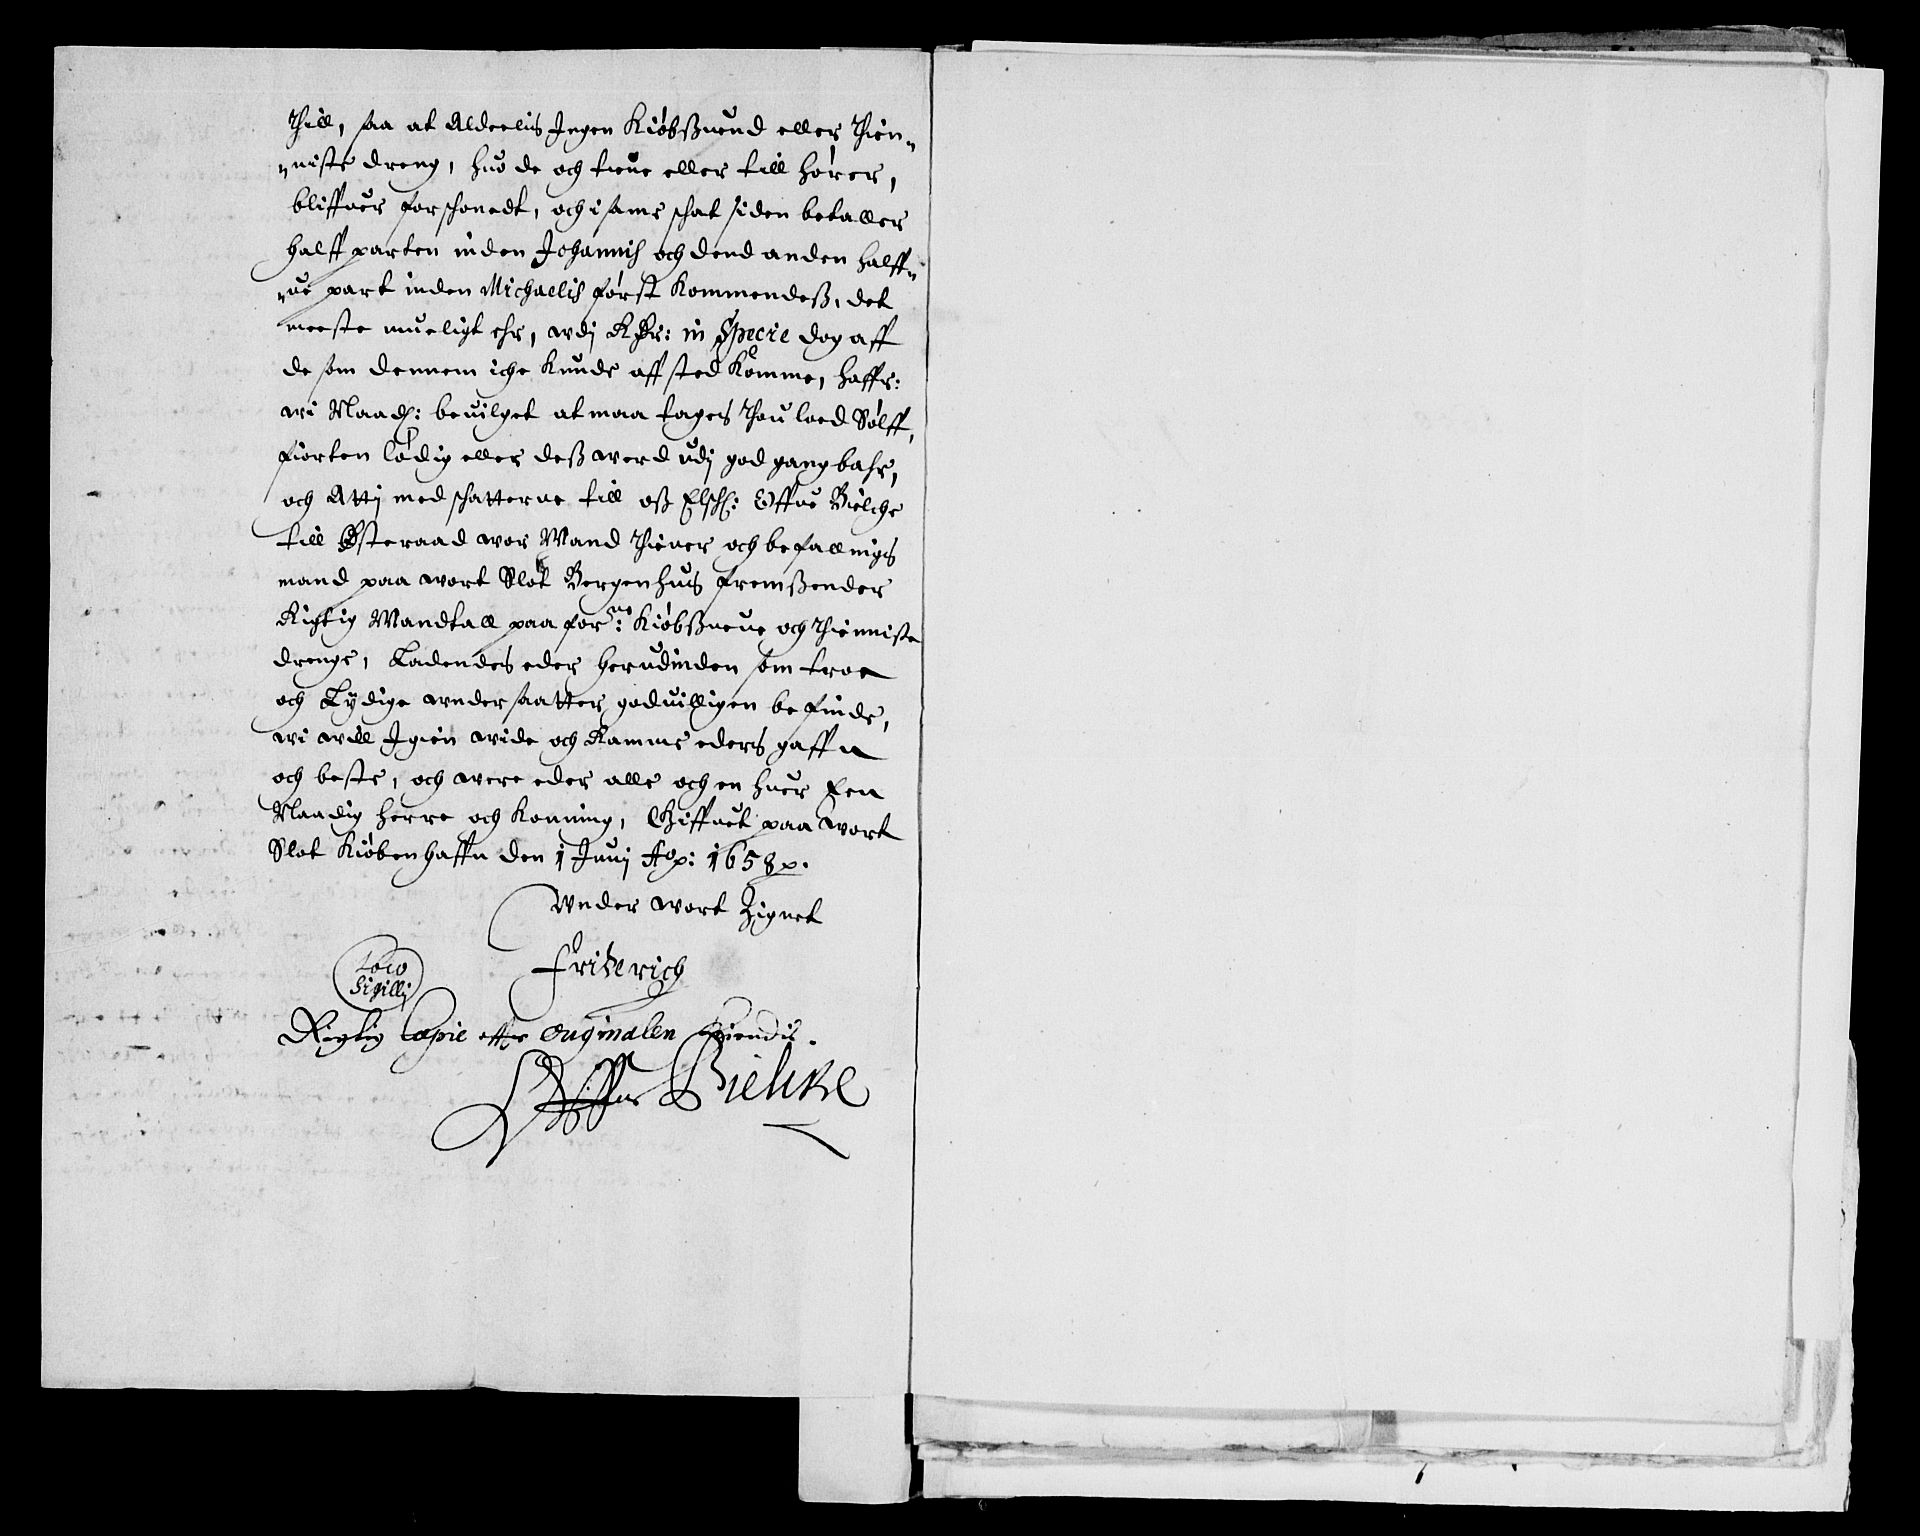 Thill, saa at Aldeelis Ingen Kiøbssuend eller Thien„
„niste dreng, huo de och tiene eller till hører,
bliffuer forschonedt, och i same schat siden betaller
halff parten inden Johannis och dend anden halff„
„ue part inden Michaelis først Kommendeß, det
meeste mueligt ehr, udj Rdr: in Specie dog aff
de som dennem iche Kunde aff sted Komme, haffr:
wi Naad: beuilget at maa tages Thou loed Sølff,
fiorten lødig eller deß werd udj god gangbahr,
och Atti med schatterne till oß Elsch: Offue Bielche
till Østeraad wor Mand Thiener och befallnigs
mand paa wort Slot Bergenhuus fremßender
Rigtig Mandtall paa forne: Kiøbßuene och Thienniste
drenge, Ladendes eder herudinden som troe
och Lydige undersaatter goduilligen befinde,
wi will Igien wide och Ramme eders gaffn
och beste, och were eder alle och en huer Een
Naadig herre och Konning, Giffuet paa wort
Slot Kiøbenhaffn den 1 Junj Ao: 1658 p.
Under wort Zignet
Friderich
Loco
Sigilli
Rigtig Copie effter originalen thiendis.
Offue Bielke